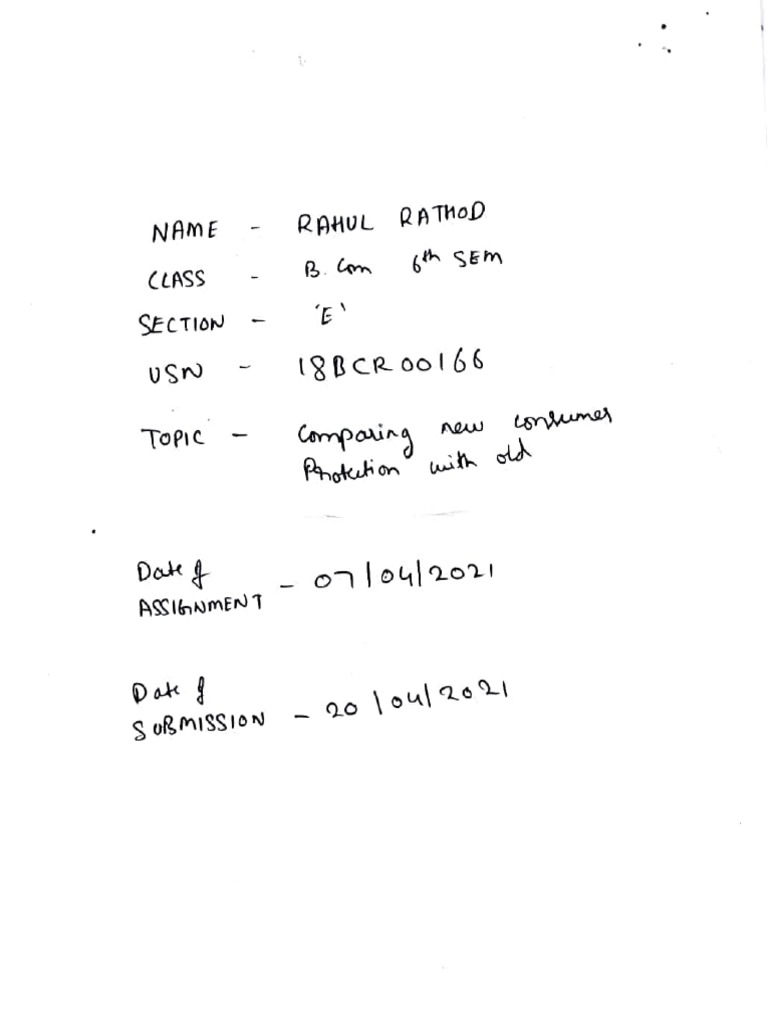 NAME - RAHUL RATHOD
CLASS - B.Com 6th SEM
SECTION - 'E'
USN - 18BCR00166
TOPIC - Comparing new consumer
Protection with old
Date of
ASSIGNMENT - 07/04/2021
Date of
SUBMISSION - 20/04/2021